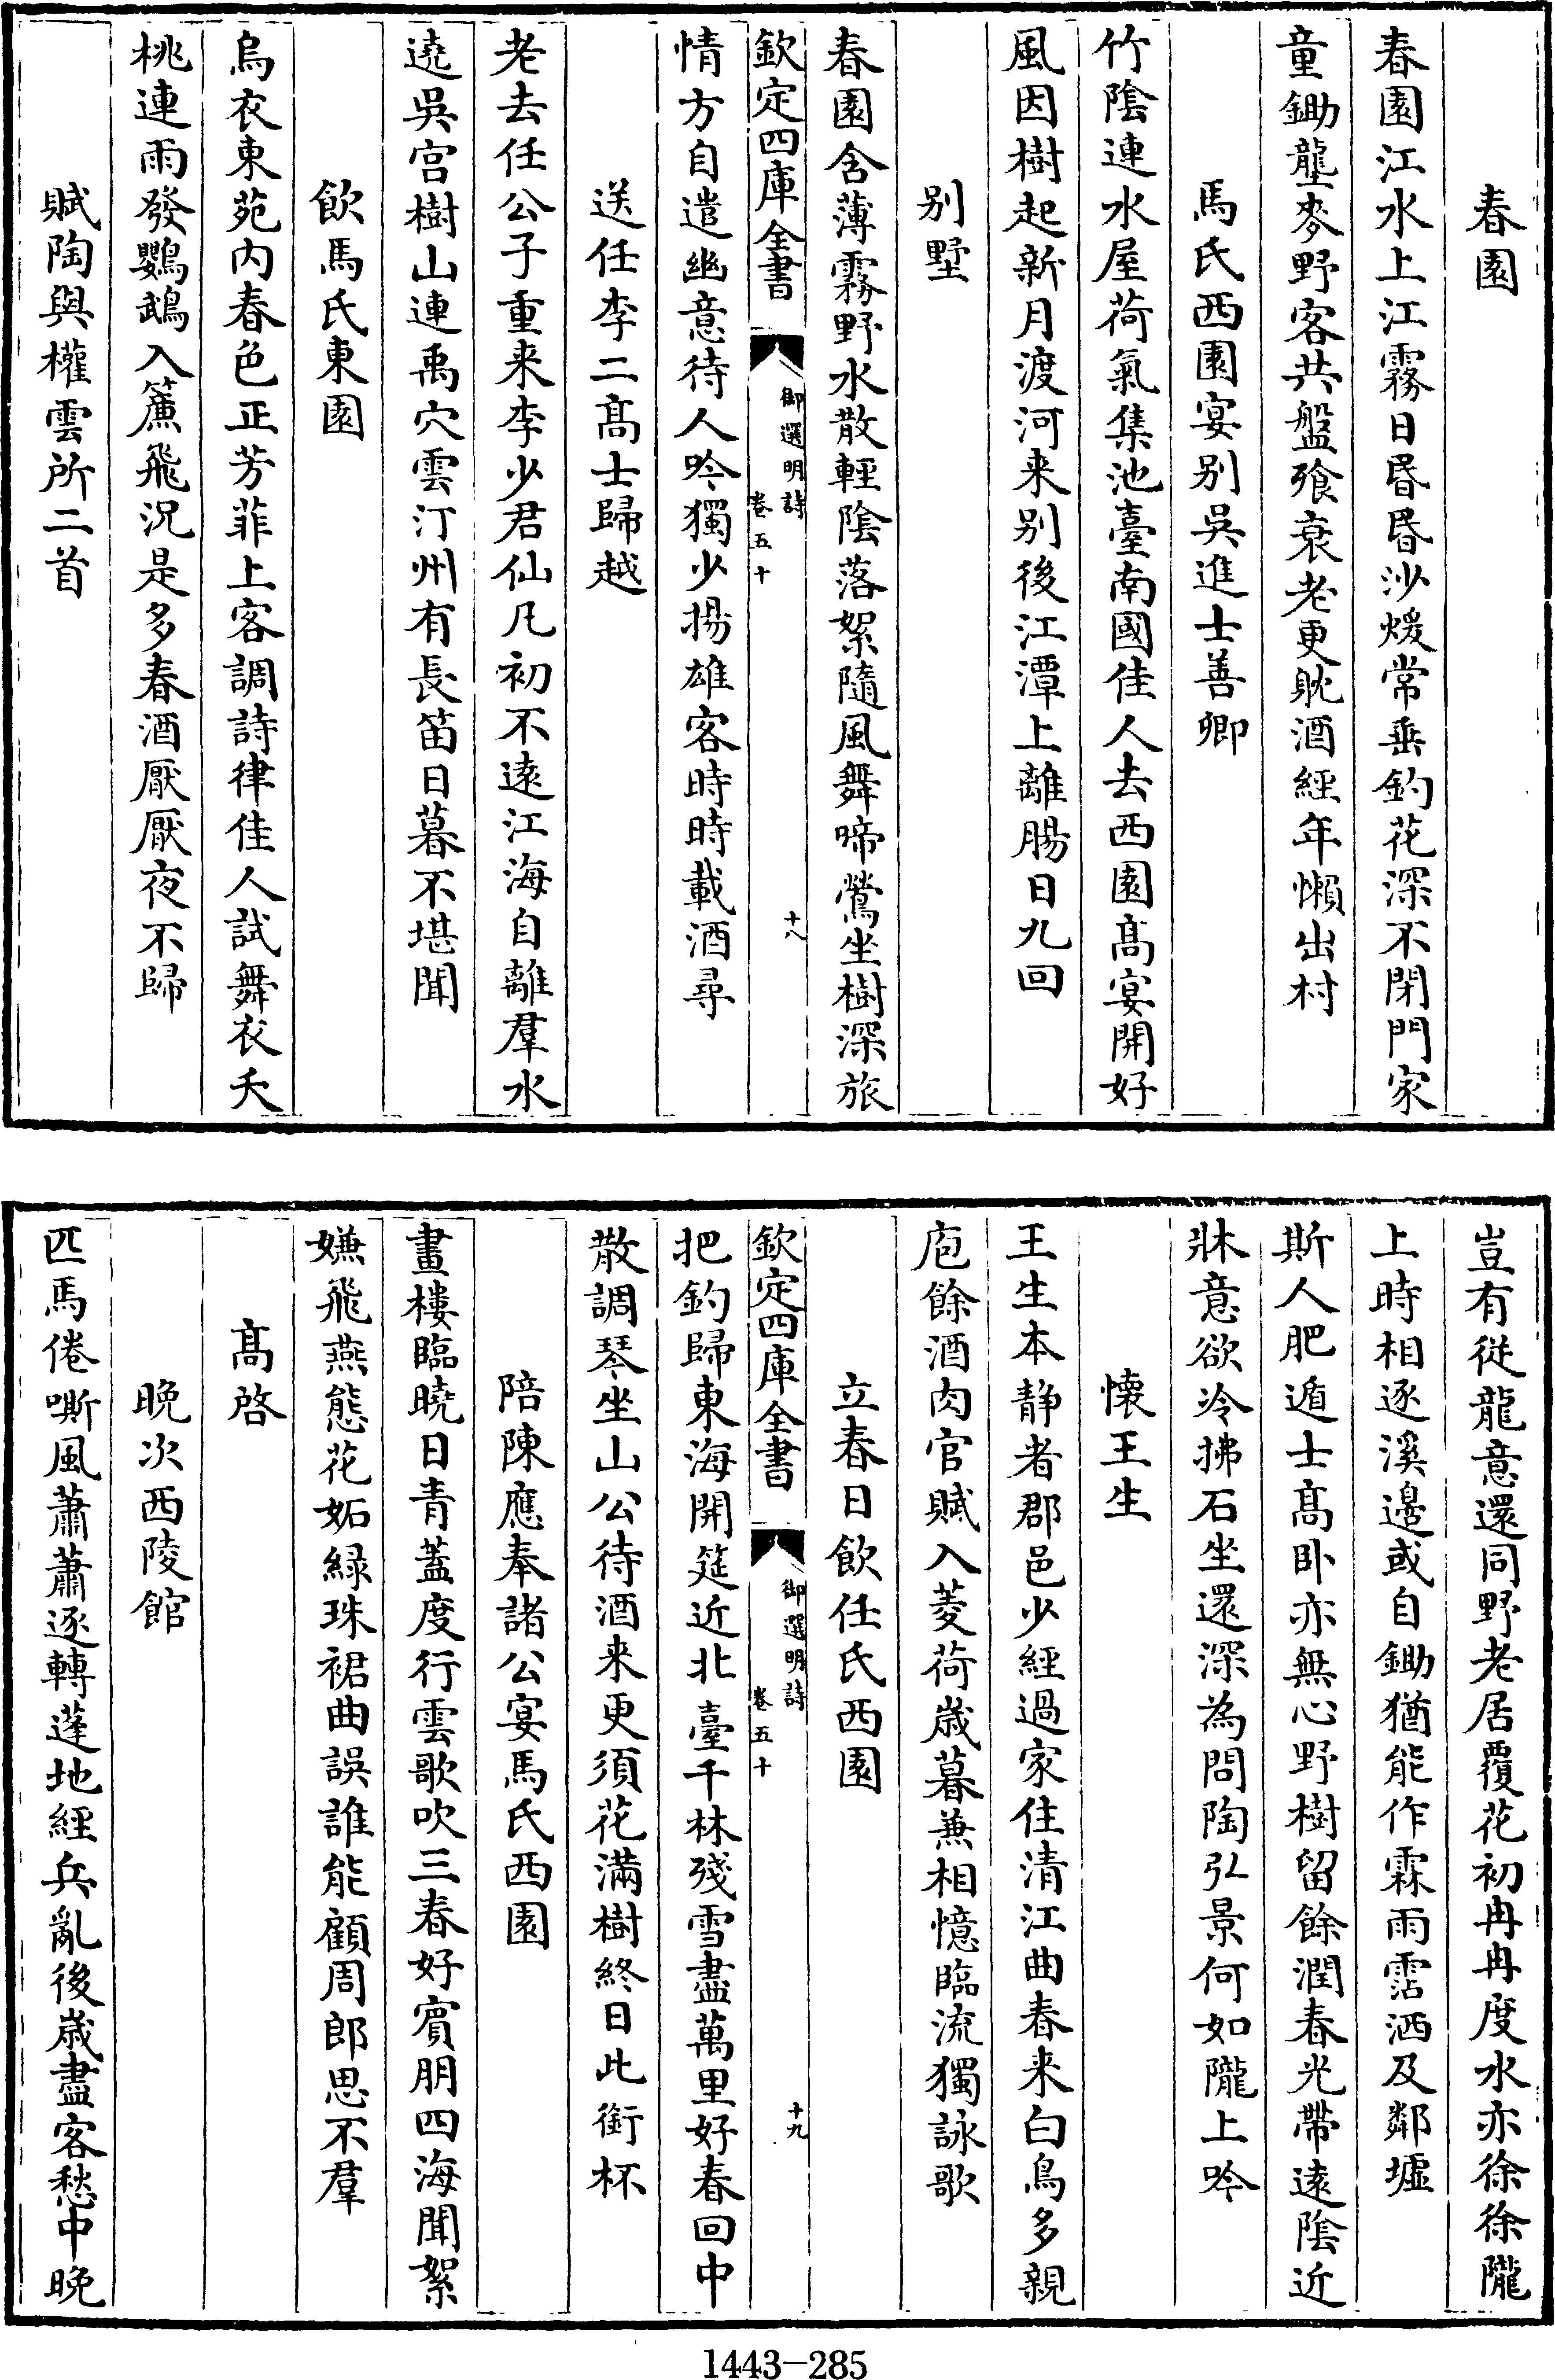 春園
春園江水上江霧日昬昬沙煖常垂釣花深不閉門家
童鋤壟麥野客共盤飱衰老更躭酒經年懶出村
馬氏西園宴别吳進士善卿
竹陰連水屋荷氣集池臺南國佳人去西園髙宴開好
風因樹起新月渡河来别後江潭上離腸日九回
别墅
春園含薄霧野水散輕陰落絮隨風舞啼鶯坐樹深旅
欽定四庫全書
御選明詩
卷五十
十八
情方自遣幽意待人吟獨少揚雄客時時載酒尋
送任李二髙士歸越
老去任公子重来李少君仙凡初不逺江海自離羣水
遶吳宫樹山連禹穴雲汀州有長笛日暮不堪聞
飲馬氏東園
烏衣東苑内春色正芳菲上客調詩律佳人試舞衣夭
桃連雨發鸚鵡入簾飛況是多春酒厭厭夜不歸
賦陶與權雲所二首
豈有從龍意還同野老居覆花初冉冉度水亦徐徐隴
上時相逐溪邊或自鋤猶能作霖雨霑洒及鄰墟
斯人肥遁士髙卧亦無心野樹留餘潤春光帶逺陰近
牀意欲冷拂石坐還深為問陶弘景何如隴上吟
懐王生
王生本静者郡邑少經過家住清江曲春来白鳥多親
庖餘酒肉官賦入菱荷歳暮兼相憶臨流獨詠歌
立春日飲任氏西園
把釣歸東海開筵近北臺千林殘雪盡萬里好春回中
欽定四庫全書
御選明詩
卷五十
十九
散調琴坐山公待酒来更須花滿樹終日此銜杯
陪陳應奉諸公宴馬氏西園
畫樓臨曉日青蓋度行雲歌吹三春好賔朋四海聞絮
嫌飛燕態花妬緑珠裙曲誤誰能顧周郎思不羣
髙啓
晚次西陵館
匹馬倦嘶風蕭蕭逐轉蓬地經兵亂後歳盡客愁中晚
1443-285